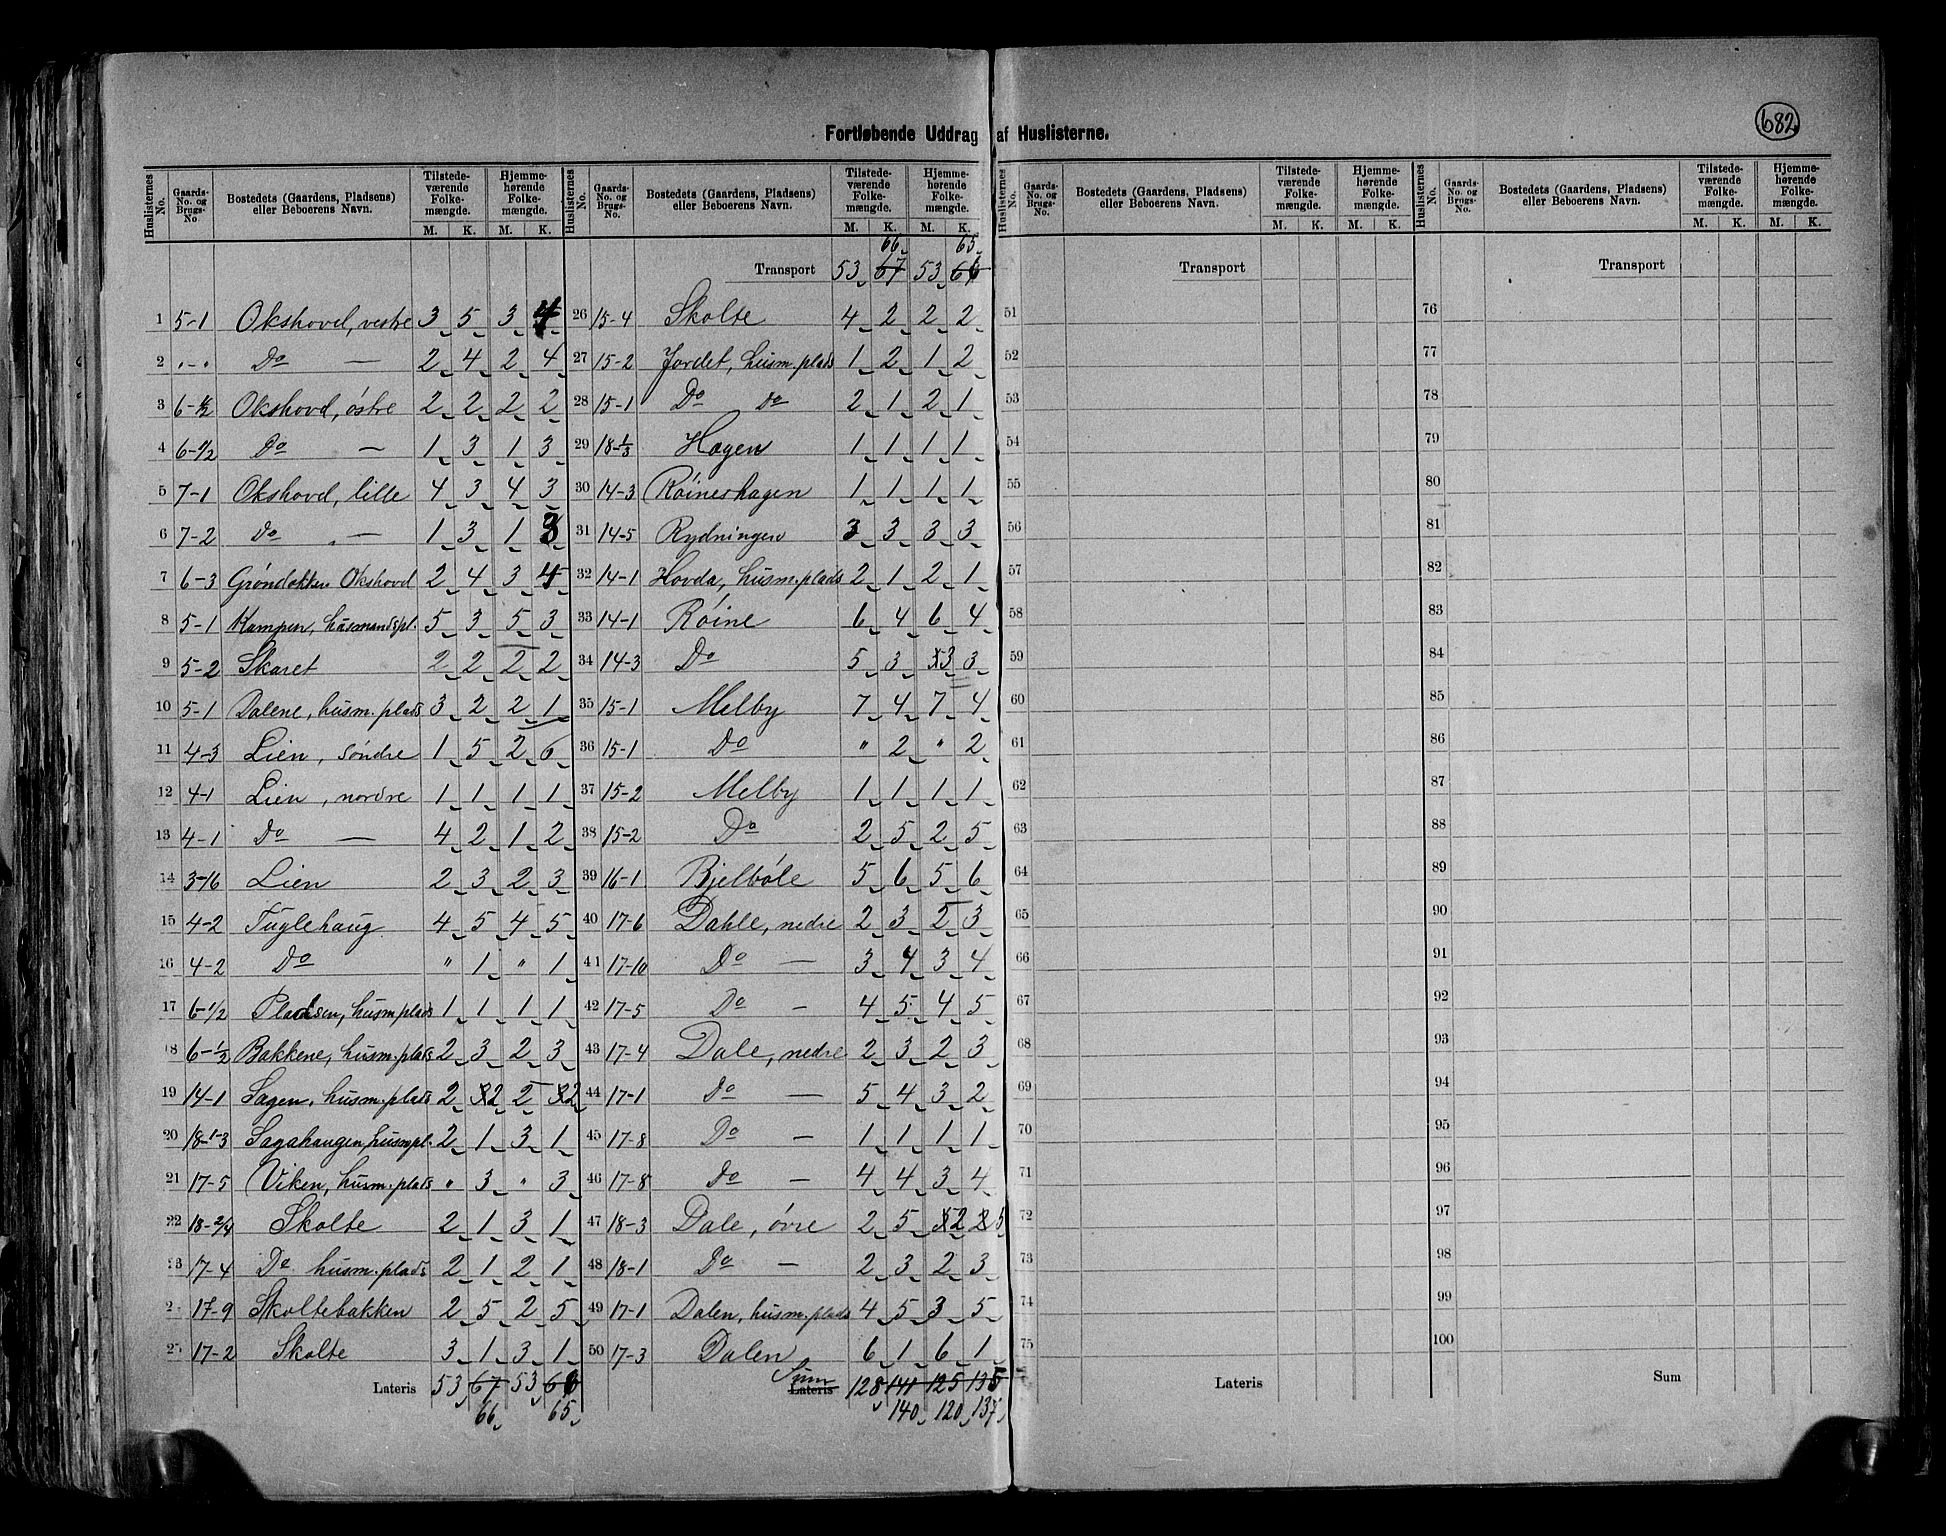 682
Fortløbende Uddrag af Huslisterne.
Huslisternes No. | Gaards-No. og Brugs-No. | Bostedets (Gaardens, Pladsens) eller Beboerens Navn. | Tilstedeværende Folkemængde. M. K. | Hjemmehørende Folkemængde. M. K.
1 5-1 Okshovd, vestre 3 5 3 4
2 "-" Do — 2 4 2 4
3 6-1/2 Okshovd, östre 2 2 2 2
4 6-1/2 Do — 1 3 1 3
5 7-1 Okshovd, lille 4 3 4 3
6 7-2 Do — 1 3 1 3
7 6-3 Gröndokken Okshovd 2 4 3 4
8 5-1 Kampen, husmandspl. 5 3 5 3
9 5-2 Skaret 2 2 2 2
10 5-1 Dalene, husm.plads 3 2 2 1
11 4-3 Lien, söndre 1 5 2 6
12 4-1 Lien, nordre 1 1 1 1
13 4-1 Do — 4 2 1 2
14 3-16 Lien 2 3 2 3
15 4-2 Fuglehaug 4 5 4 5
16 4-2 Do " 1 " 1
17 6-1/2 Pladsen, husm.plads 1 1 1 1
18 6-1/2 Bakkene, husm.plads 2 3 2 3
19 14-1 Sagen, husm.plads 2 2 2 2
20 18-1-3 Sagahaugen, husmpl. 2 1 3 1
21 17-5 Viken, husm.plads " 3 " 3
22 18-2/4 Skolte 2 1 3 1
23 17-4 Do husm.plads 2 1 2 1
2 17-9 Skoltebakken 2 5 2 5
25 17-2 Skolte 3 1 3 1
Lateris 53 67 53 66
66 65
Huslisternes No. | Gaards-No. og Brugs-No. | Bostedets (Gaardens, Pladsens) eller Beboerens Navn. | Tilstedeværende Folkemængde. M. K. | Hjemmehørende Folkemængde. M. K.
66 65
Transport 53 67 53 66
26 15-4 Skolte 4 2 2 2
27 15-2 Jordet, husm.plads 1 2 1 2
28 15-1 Do do 2 1 2 1
29 18-1/3 Hagen 1 1 1 1
30 14-3 Röineshagen 1 1 1 1
31 14-5 Rydningen 3 3 3 3
32 14-1 Hovda, husm.plads 2 1 2 1
33 14-1 Röine 6 4 6 4
34 14-3 Do 5 3 3 3
35 15-1 Melby 7 4 7 4
36 15-1 Do " 2 " 2
37 15-2 Melby 1 1 1 1
38 15-2 Do 2 5 2 5
39 16-1 Bjelböle 5 6 5 6
40 17-6 Dahle, nedre 2 3 2 3
41 17-10 Do — 3 4 3 4
42 17-5 Do — 4 5 4 5
43 17-4 Dale, nedre 2 3 2 3
44 17-1 Do — 5 4 3 2
45 17-8 Do — 1 1 1 1
46 17-8 Do — 4 4 3 4
47 18-3 Dale, övre 2 5 2 5
48 18-1 Do — 2 3 2 3
49 17-1 Dalen, husm.plads 4 5 3 5
50 17-3 Dalen 6 1 6 1
Sum
Lateris 128 141 125 135
140 120 137
Huslisternes No. | Gaards-No. og Brugs-No. | Bostedets (Gaardens, Pladsens) eller Beboerens Navn. | Tilstedeværende Folkemængde. M. K. | Hjemmehørende Folkemængde. M. K.
Transport
51
52
53
54
55
56
57
58
59
60
61
62
63
64
65
66
67
68
69
70
71
72
73
74
75
Lateris
Huslisternes No. | Gaards-No. og Brugs-No. | Bostedets (Gaardens, Pladsens) eller Beboerens Navn. | Tilstedeværende Folkemængde. M. K. | Hjemmehørende Folkemængde. M. K.
Transport
76
77
78
79
80
81
82
83
84
85
86
87
88
89
90
91
92
93
94
95
96
97
98
99
100
Sum